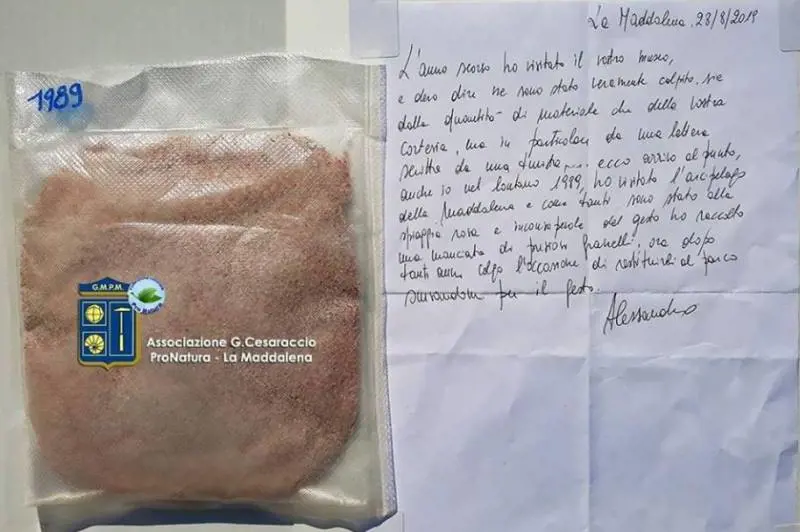 1989
G.M.P.M.
Associazione G.Cesaraccio
ProNatura - La Maddalena
La Maddalena, 28/8/2019
L'anno scorso ho visitato il vostro museo,
e devo dire ne sono stato veramente colpito, sia
dalla quantità di materiale che della vostra
cortesia, ma in particolare da una lettera
scritta da una turista... ecco arrivo al punto,
anche io nel lontano 1989, ho visitato l'arcipelago
della Maddalena e come tanti sono stato alla
spiaggia rosa e inconsapevole del gesto ho raccolto
una manciata di preziosi granelli, ora dopo
tanti anni colgo l'occasione di restituirli al parco
scusandomi per il gesto.
Alessandro